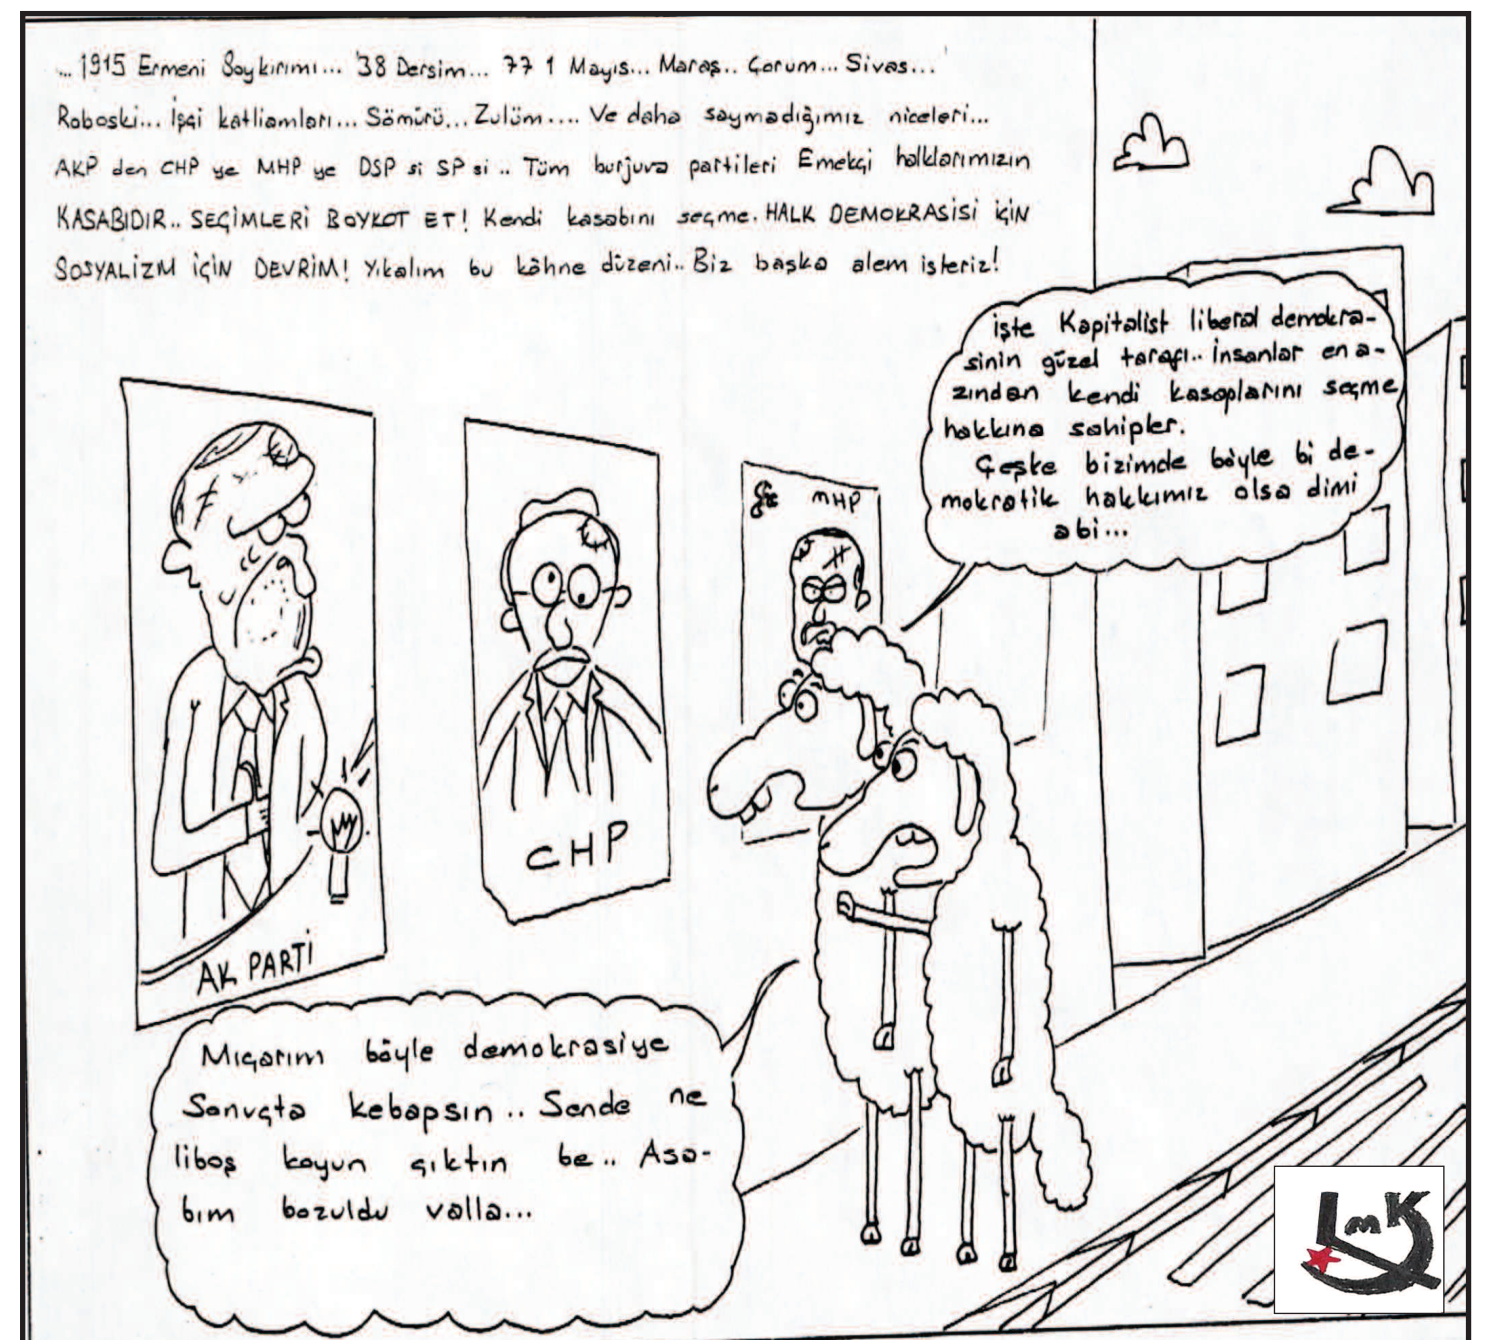 ... 1915 Ermeni Soykırımı... '38 Dersim... 77 1 Mayıs... Maraş.. Çorum... Sivas...
Roboski... İşçi katliamları... Sömürü... Zulüm.... Ve daha saymadığımız niceleri...
AKP den CHP ye MHP ye DSP si SP si .. Tüm burjuva partileri Emekçi halklarımızın
KASABIDIR.. SEÇİMLERİ BOYKOT ET! Kendi kasabını seçme. HALK DEMOKRASİSİ İÇİN
SOSYALİZM İÇİN DEVRİM! Yıkalım bu köhne düzeni.. Biz başka alem isteriz!
işte Kapitalist liberal demokra-
sinin güzel tarafı.. İnsanlar en a-
zından kendi kasaplarını seçme
hakkına sahipler.
Çeşke bizimde böyle bi de-
mokratik hakkımız olsa dimi
abi...
MHP
CHP
AK PARTİ
Mıçarım böyle demokrasiye
Sonuçta kebapsın .. Sende ne
liboş koyun çıktın be .. Asa-
bım bozuldu valla...
LMK